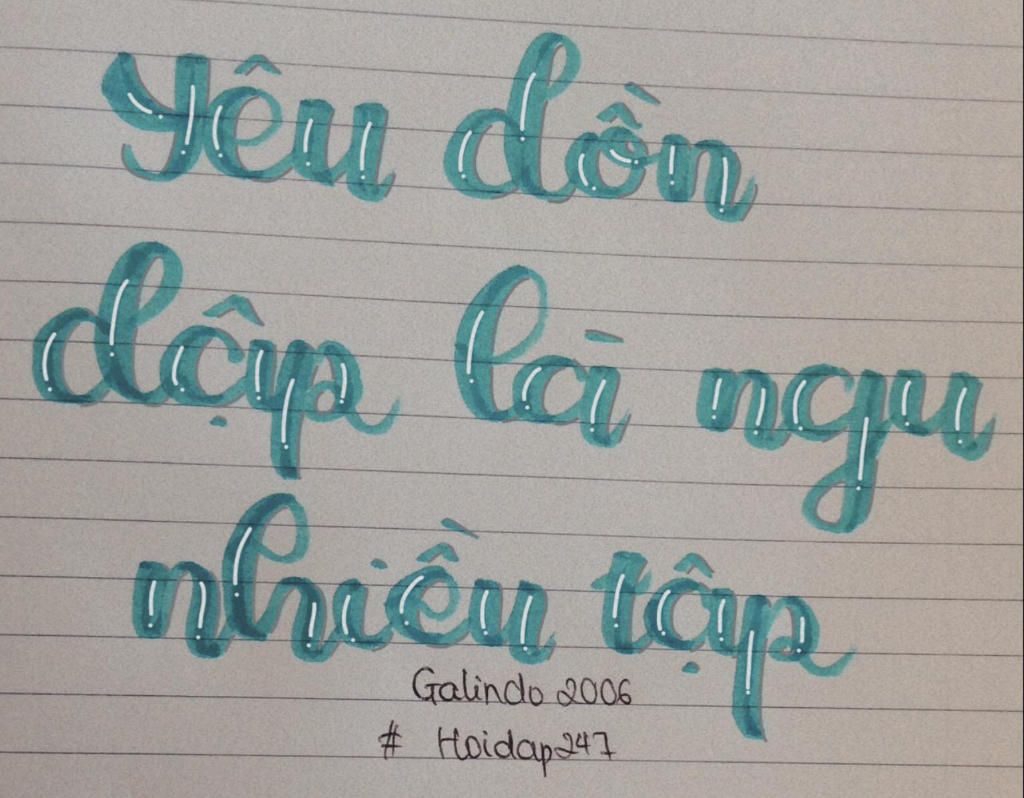 Yêu dồn
dập là ngu
nhiều tập
Galindo 2006
# Hoidap247